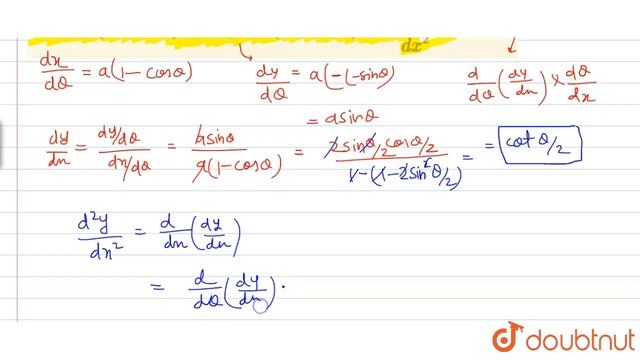 d²
dx²
dx/dθ = a(1 - cosθ) dy/dθ = a(-(-sinθ) d/dθ (dy/dn) × dθ/dx
= asinθ
dy/dn = dy/dθ / dn/dθ = asinθ / a(1 - cosθ) = 2sinθ/2 cosθ/2 / 1-(1-2sin²θ/2) = = cot θ/2
d²y/dx² = d/dn (dy/dn)
= d/dθ (dy/dn) ·
doubtnut